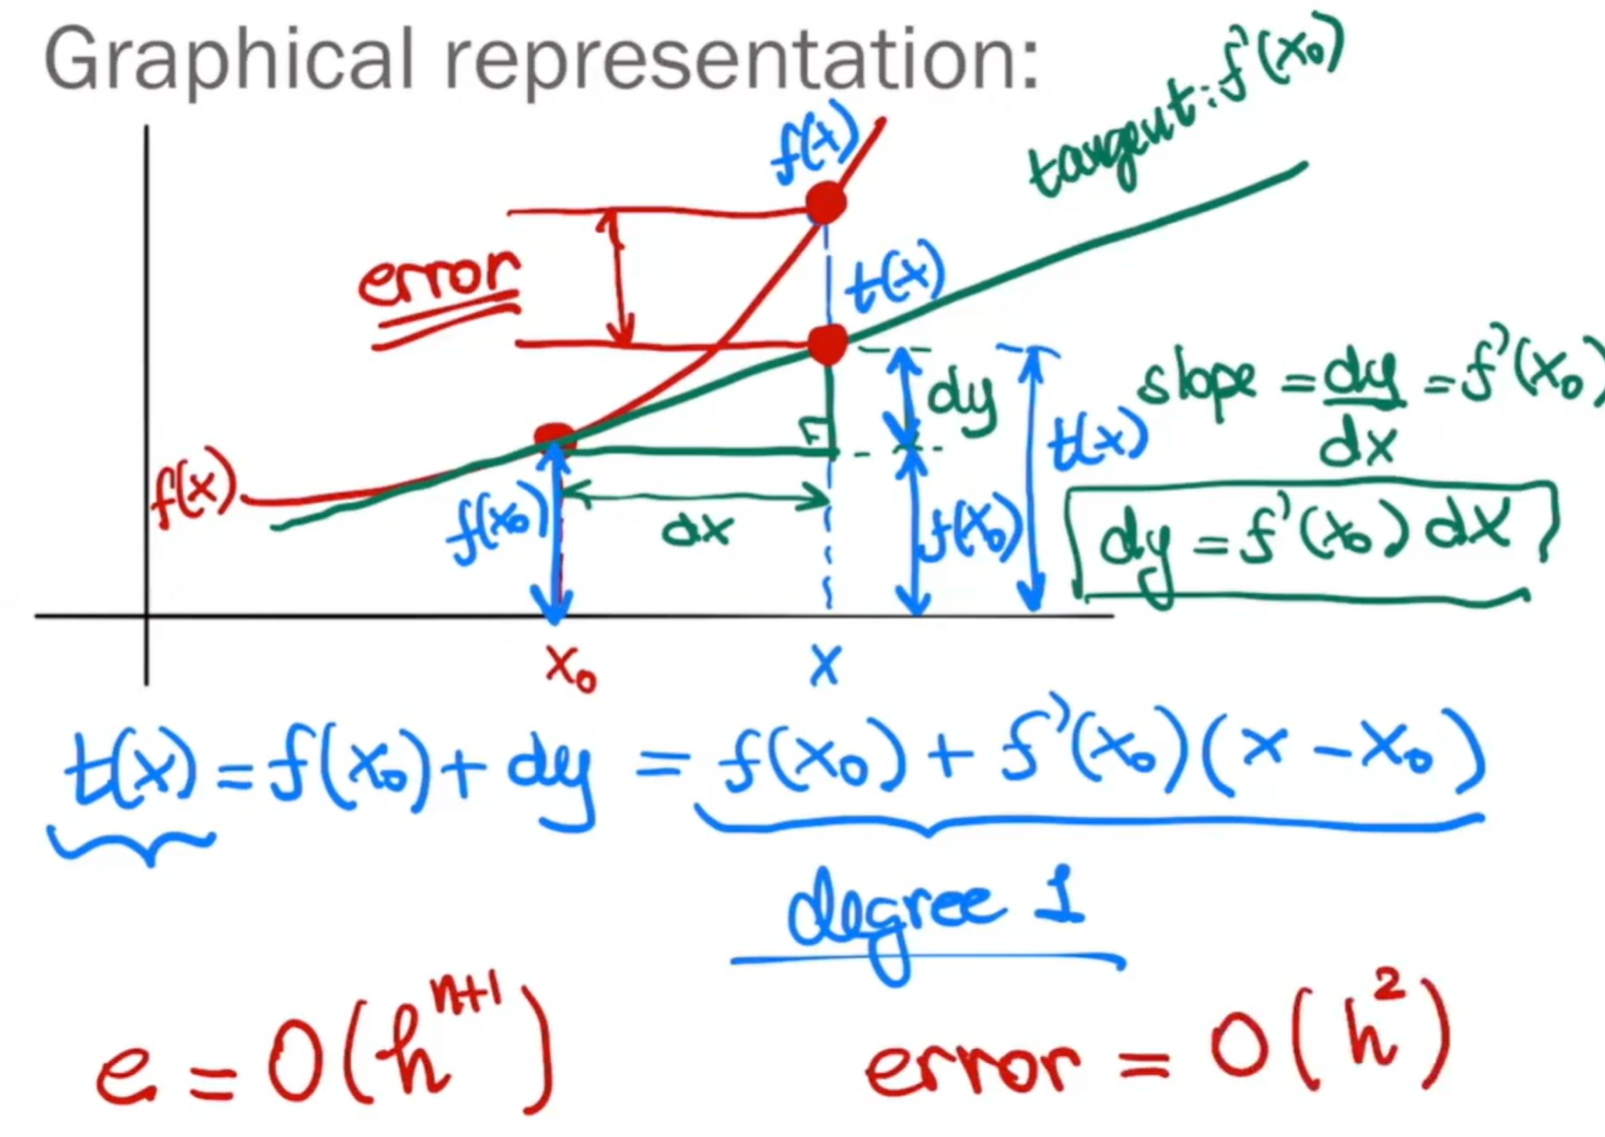 Graphical representation:
tangent: f'(x₀)
f(x)
error
t(x)
dy
slope = dy/dx = f'(x₀)
t(x)
f(x)
f(x₀)
dx
f(x₀)
dy = f'(x₀) dx
x₀
x
t(x) = f(x₀) + dy = f(x₀) + f'(x₀)(x - x₀)
degree 1
e = O(hⁿ⁺¹)
error = O(h²)